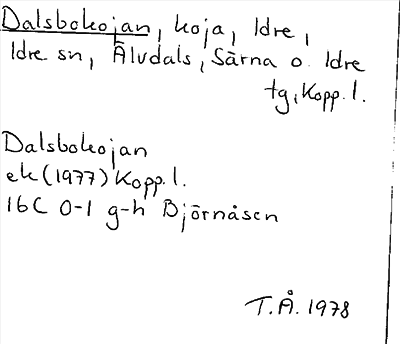 Dalsbokojan, koja, Idre,
Idre sn, Älvdals, Särna o. Idre
tg, Kopp. l.
Dalsbokojan
ek (1977) Kopp. l.
16C 0-1 g-h Björnåsen
T.Å. 1978